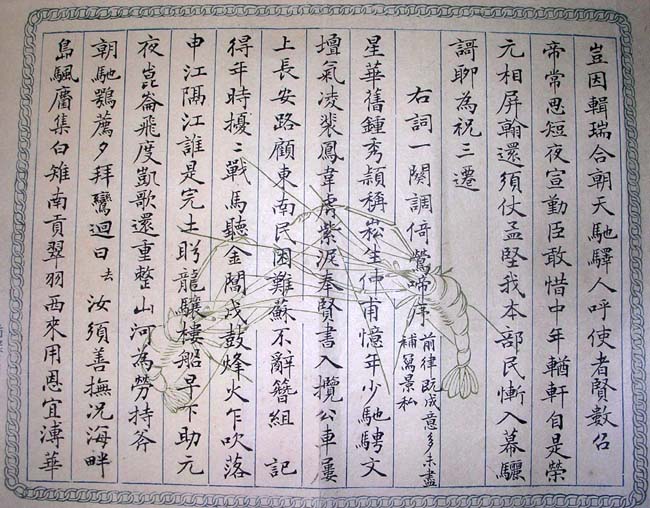 豈因輯瑞合朝天馳驛人呼使者賢數召
帝常思短夜宣勤臣敢惜中年輶軒自是榮
元相屏翰還須仗孟堅我本部民慚入幕驪
謌聊為祝三遷
右詞一闋調倚鶯啼序 前律既成意多未盡
補寫景私
星華舊鍾秀穎稱崧生仲甫憶年少馳騁文
壇氣凌裴鳳韋虎紫泥奉賢書入攬公車屢
上長安路顧東南民困難蘇不辭簪組 記
得年時擾〻戰馬聽金閶戍鼓烽火乍吹落
申江隔江誰是完土盼龍驤樓船早下助元
夜崑崙飛度凱歌還重整山河為勞持斧
朝馳鶚薦夕拜鸞迴日去 汝須善撫況海畔
島颿麕集白雉南貢翠羽西來用恩宜溥華